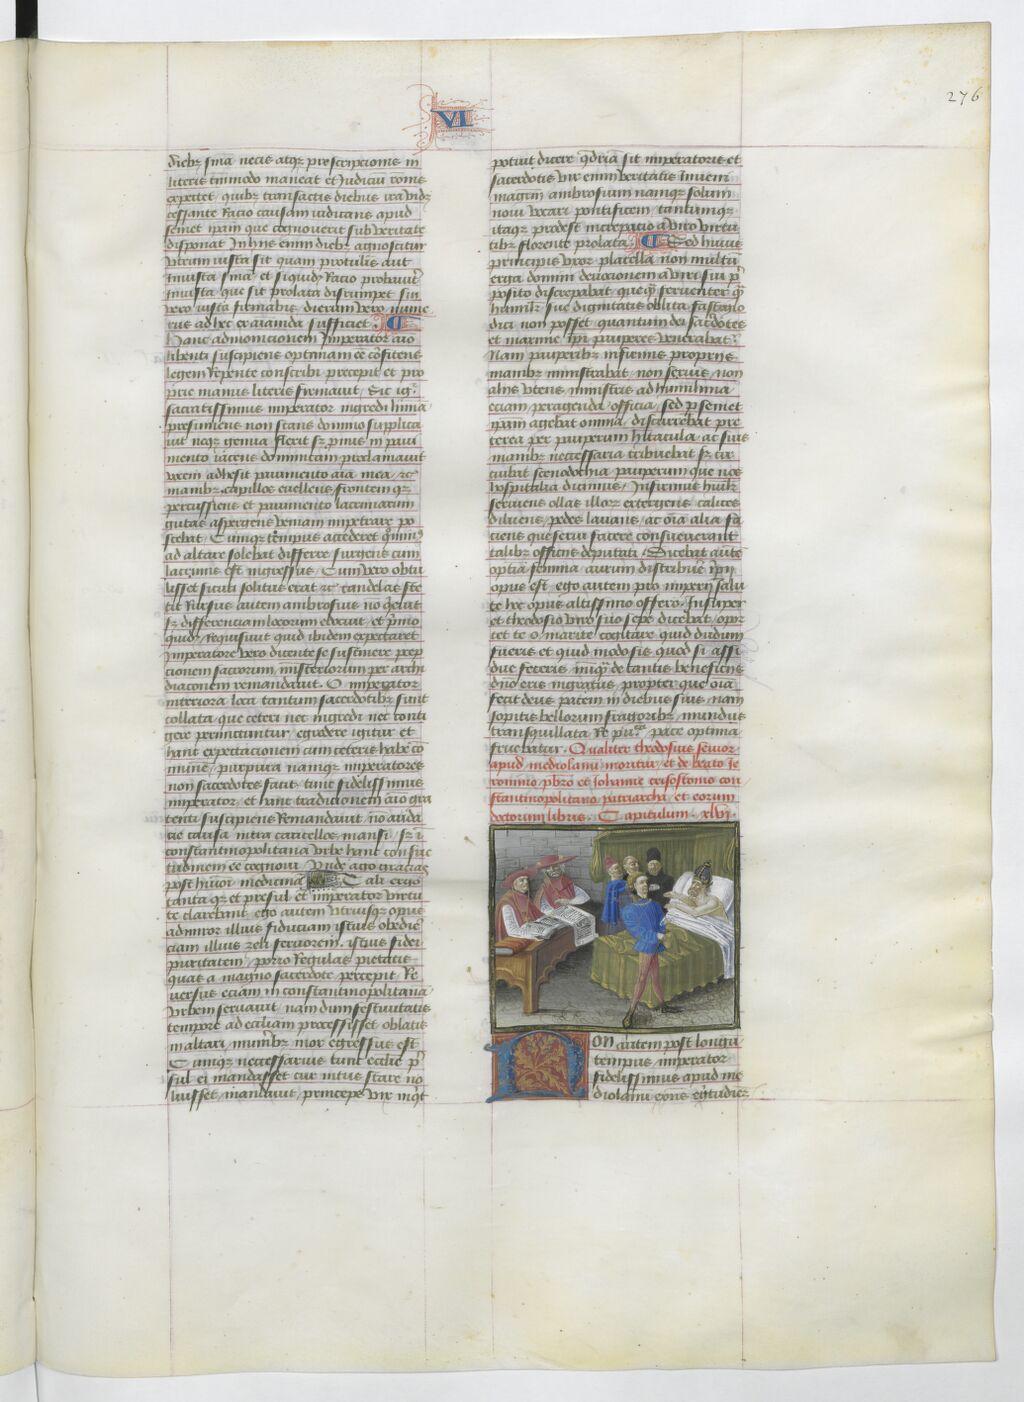 276
VI
dieb3 sm̄a necis atq3 prescripcionis in
literis tm̄modo maneat et Judiciū rome
expectet. quib3 transactis diebus ira vid3
cessante Racio causam iudicans apud
semet ipam que cognoverit sub veritate
disponat Jn hijs enim dieb3 agnoscitur
vtrum iusta sit quam protulisti aut
Jniusta sm̄a et siquid3 Racio probauit
Jniusta. que sit prolata disrumpet sin
vero iusta firmabis. dierum vero nume
rus ad hec exaianda sufficiet. ¶
Hanc admonicionem Jmperator aīo
libenti suscipiens optimam eē cōfitens
legem Repente conscribi precepit et pro
prie manus literis firmauit. Sic ig
sacratissimus imperator ingredi limīa
presumens non stans domino supplica
uit neq3 genua flexit s3 pnus in paui
mento iacens dominicum proclamauit
vocem adhesit pauimento aīa mea 7c
manib3 capillos euellens frontem q3
percussiens et pauimento lacrimarum
gutas aspergens veniam impetrare po
scebat. Cumq3 tempus accederet
ad altare solebat differre surgens cum
lacrimis est ingressus. Cum vero obtu
lisset sicuti solitus erat 7c candelas ste
tit Rursus autem ambrosius nō
s3 differenciam locorum edocuit. et pmo
quid3 Requisiuit quid ibidem expectaret
Jmperatore vero dicente se sustinere prep
cionem sacrorum misteriorum per archi
diaconem remandauit. O imperator
interiora loca tantum sacerdotib3 sunt
collata. que ceteri nec ingredi nec conti
gere permittuntur egredere igitur et
hanc expectacionem cum ceteris habe cō
munē. purpura namq3 imperatores
non sacerdotes facit. tunc fidelissimus
imperator et hanc tradicionem aīo gra
tenti suscipiens Remandauit. nō auda
cie causa intra cancellos mansi. s3 ī
constantinopolitana vrbe hanc consue
tudinem eē cognoui. Vnde ago gracias
post huius medicina ¶ Tali ergo
tanta q3 et presul et imperator virtu
te clarebant. ego autem vtriusq3 opus
admiror illius fiduciam istius obediē
ciam illius zeli feruorem. istius fidei
puritatem. porro Regulas pietatis
quas a magno sacerdote percepit Re
versus eciam in constantinopolitana
vrbem seruauit. nam dum festiuitatis
tempore ad ecliam processisset oblatis
in altari munib3 mox egressus est
Cumq3 neccessarius tunc ecclie p̄
sul ei mandasset cur intus stare no
luisset mandauit princeps vix
potuit dicere sit imperatoris et
sacerdotis vix enim veritatis Jnueni
magrm̄ ambrosium namq3 solum
noui vocari pontificem. tantumq3
itaq3 prodest increpatio a viro virtu
tib3 florente prolata. ¶ Sed huius
principis vxor placella non multū
erga domini deuocionem a viri sui p̄
posito discrepabat que feruenter
humili sue dignitatis oblita fastigio
dici non posset quantum dei sacerdotes
et maxime ipi pauperes venerabat
Nam pauperib3 infirmis proprijs
manib3 ministrabat. non seruis non
alijs vtens ministris ad humilima
eciam peragenda officia. sed p semet
ipam agebat omnia. discurrebat pre
terea per pauperum hitacula. ac suis
manib3 necessaria tribuebat s3 cir
cuibat scenodochia pauperum que nos
hospitalia dicimus. Jnfirmis huil
seruiens ollas illor3 extergens calices
diluens. pedes lauans. ac oīa alia fa
ciens que serui facere consueuerant
talib3 officijs deputati. Dicebat autē
optīa femina aurum distribuē ipi
opus est ego autem pro imperij salu
te hec opus altissimo offero. Jnsuper
et theodosio viro suo sepe dicebat opor
tet te o marite cogitare quid dudum
fueris et quid modo sis quod si assi
due feceris de tantis beneficijs
dn̄o eris ingratus propter que oīa
fecit deus pacem in diebus suis. nam
sopitis bellorum fragorib3. mundus
transquillata Re pu.ca pace optima
fruebatur. Qualiter theodosius senior
apud mediolanū moritur et de beato Je
ronimo pbr̄o et Johanne crisostomo con
stantinopolitano patriarcha et eorum
doctorum libris. Capitulum. xlvj.
NON autem post longū
tempus imperator
fidelissimus apud me
diolanū